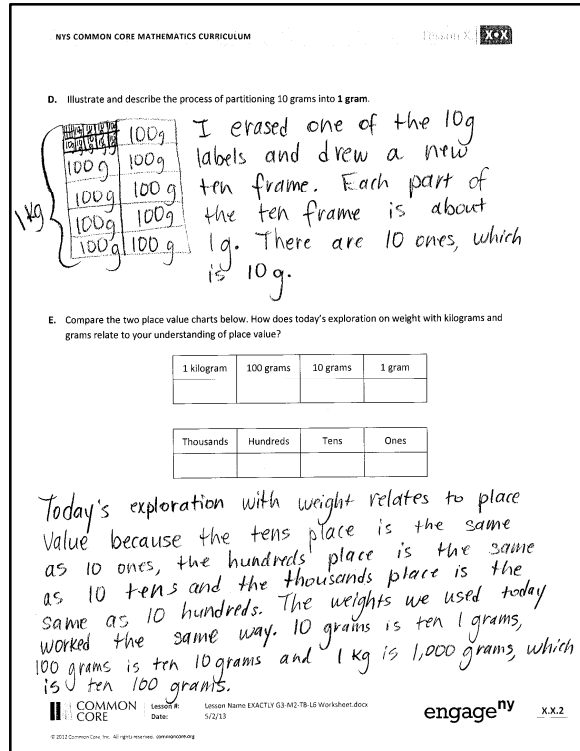 NYS COMMON CORE MATHEMATICS CURRICULUM
Lesson X X•X
D. Illustrate and describe the process of partitioning 10 grams into 1 gram.
I erased one of the 10g
labels and drew a new
ten frame. Each part of
the ten frame is about
1g. There are 10 ones, which
is 10g.
1 kg
100g
100g 100g
100g 100g
100g 100g
100g 100g
E. Compare the two place value charts below. How does today's exploration on weight with kilograms and
grams relate to your understanding of place value?
1 kilogram 100 grams 10 grams 1 gram
Thousands Hundreds Tens Ones
Today's exploration with weight relates to place
Value because the tens place is the same
as 10 ones, the hundreds place is the same
as 10 tens and the thousands place is the
same as 10 hundreds. The weights we used today
worked the same way. 10 grams is ten 1 grams,
100 grams is ten 10 grams and 1 kg is 1,000 grams, which
is ten 100 grams.
COMMON CORE
Lesson #: Lesson Name EXACTLY G3-M2-TB-L6 Worksheet.docx
Date: 5/2/13
engageny
X.X.2
© 2012 Common Core, Inc. All rights reserved. commoncore.org